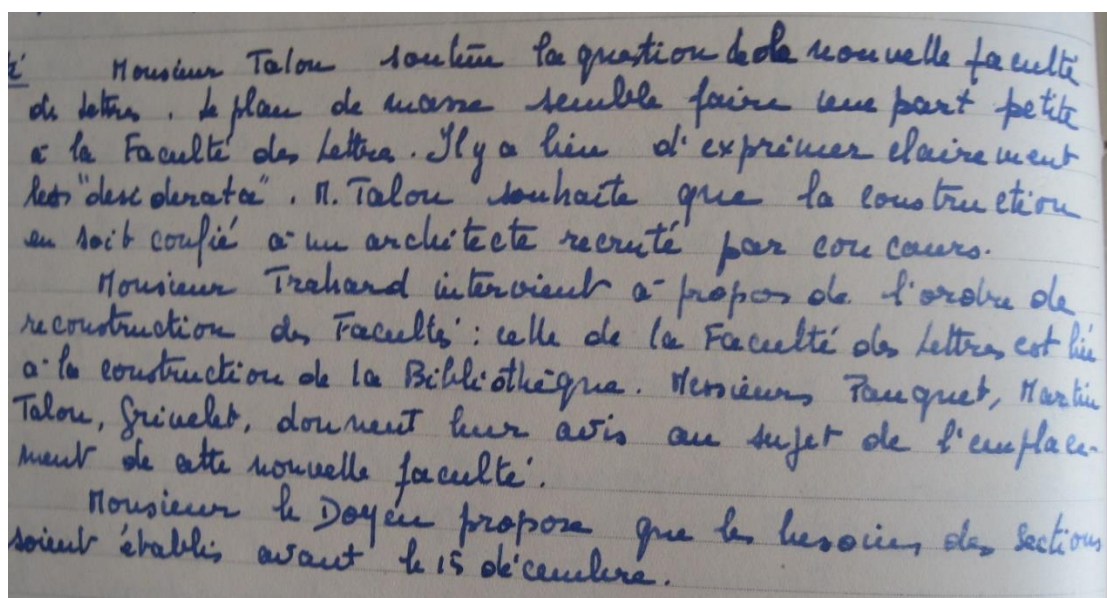 Monsieur Talon soulève la question de la nouvelle faculté
des lettres. Le plan de masse semble faire une part petite
à la Faculté des Lettres. Il y a lieu d'exprimer clairement
les "desiderata". M. Talon souhaite que la construction
en soit confié à un architecte recruté par concours.
Monsieur Trahard intervient à propos de l'ordre de
reconstruction des Facultés : celle de la Faculté des Lettres est liée
à la construction de la Bibliothèque. Messieurs Fauquet, Martin
Talon, Grivelet, donnent leur avis au sujet de l'emplace-
ment de cette nouvelle faculté.
Monsieur le Doyen propose que les besoins des Sections
soient établis avant le 15 décembre.